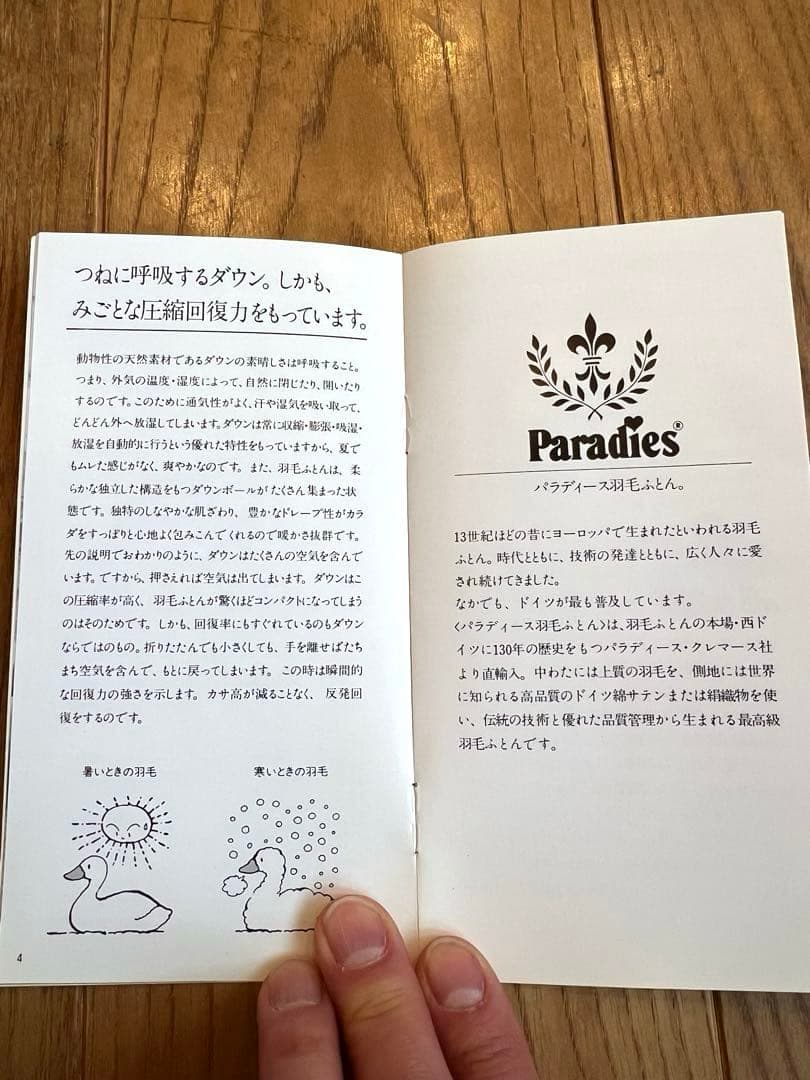 つねに呼吸するダウン。しかも、
みごとな圧縮回復力をもっています。
動物性の天然素材であるダウンの素晴しさは呼吸すること。
つまり、外気の温度・湿度によって、自然に閉じたり、開いたり
するのです。このために通気性がよく、汗や湿気を吸い取って、
どんどん外へ放湿してしまいます。ダウンは常に収縮・膨張・吸湿・
放湿を自動的に行うという優れた特性をもっていますから、夏で
もムレた感じがなく、爽やかなのです。また、羽毛ふとんは、柔
らかな独立した構造をもつダウンボールがたくさん集まった状
態です。独特のしなやかな肌ざわり、豊かなドレープ性がカラ
ダをすっぽりと心地よく包みこんでくれるので暖かさ抜群です。
先の説明でおわかりのように、ダウンはたくさんの空気を含んで
います。ですから、押さえれば空気は出てしまいます。ダウンはこ
の圧縮率が高く、羽毛ふとんが驚くほどコンパクトになってしまう
のはそのためです。しかも、回復率にもすぐれているのもダウン
ならではのもの。折りたたんでも小さくしても、手を離せばたち
まち空気を含んで、もとに戻ってしまいます。この時は瞬間的
な回復力の強さを示します。カサ高が減ることなく、反発回
復をするのです。
暑いときの羽毛
寒いときの羽毛
4
Paradies®
パラディース羽毛ふとん。
13世紀ほどの昔にヨーロッパで生まれたといわれる羽毛
ふとん。時代とともに、技術の発達とともに、広く人々に愛
され続けてきました。
なかでも、ドイツが最も普及しています。
〈パラディース羽毛ふとん〉は、羽毛ふとんの本場・西ド
イツに130年の歴史をもつパラディース・クレマース社
より直輸入。中わたには上質の羽毛を、側地には世界
に知られる高品質のドイツ綿サテンまたは絹織物を使
い、伝統の技術と優れた品質管理から生まれる最高級
羽毛ふとんです。